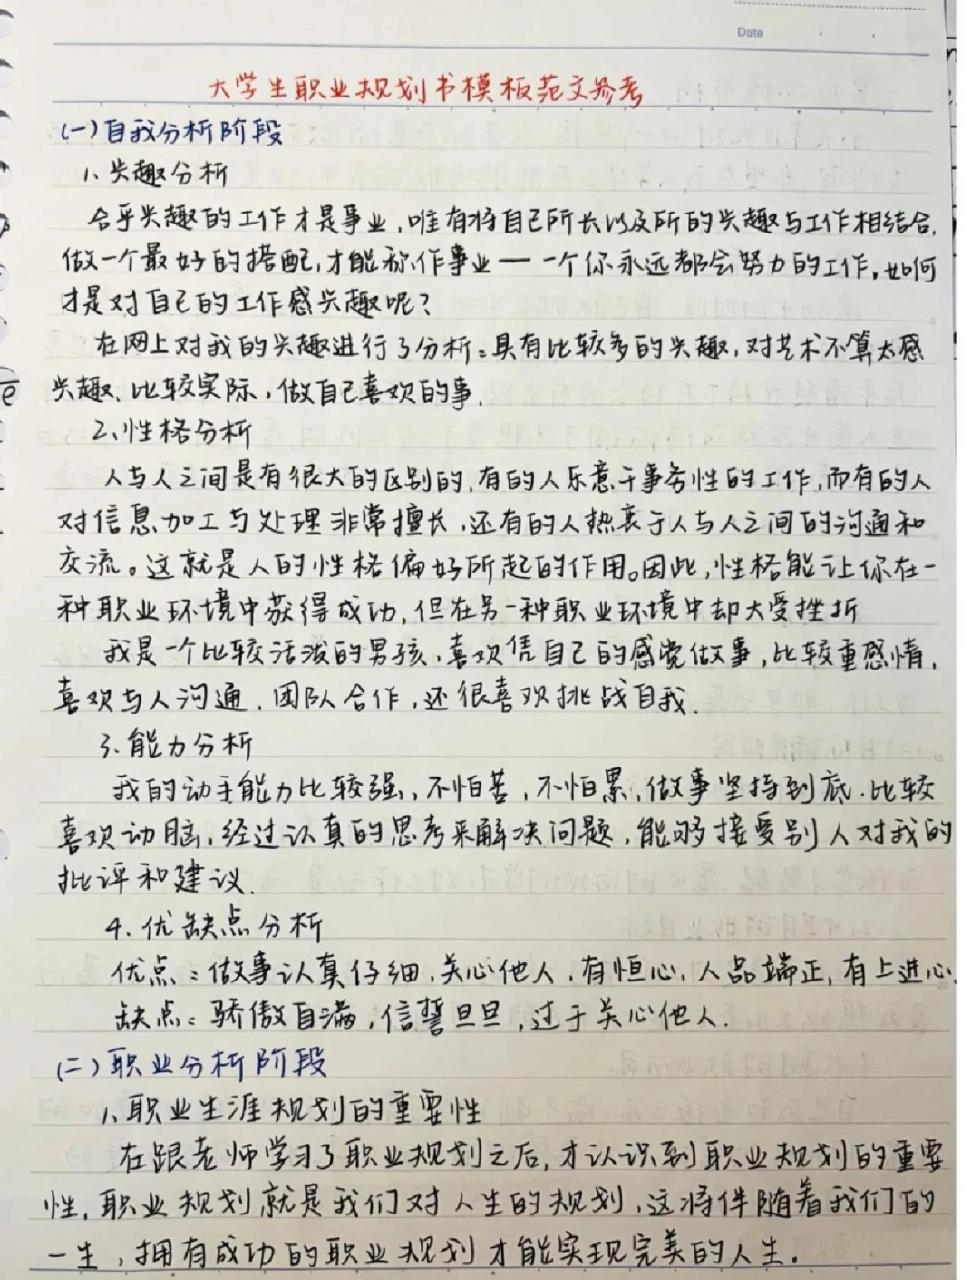 Date
大学生职业规划书模板范文参考
(一)自我分析阶段
1、兴趣分析
合乎兴趣的工作才是事业,唯有将自己所长以及所的兴趣与工作相结合,
做一个最好的搭配,才能称作事业——一个你永远都会努力的工作。如何
才是对自己的工作感兴趣呢?
在网上对我的兴趣进行了分析:具有比较多的兴趣,对艺术不算太感
兴趣、比较实际,做自己喜欢的事.
2、性格分析
人与人之间是有很大的区别的,有的人乐意干事务性的工作,而有的人
对信息加工与处理非常擅长,还有的人热衷于人与人之间的沟通和
交流。这就是人的性格偏好所起的作用。因此,性格能让你在一
种职业环境中获得成功,但在另一种职业环境中却大受挫折
我是一个比较活泼的男孩,喜欢凭自己的感觉做事,比较重感情,
喜欢与人沟通、团队合作,还很喜欢挑战自我.
3、能力分析
我的动手能力比较强,不怕苦,不怕累,做事坚持到底.比较
喜欢动脑,经过认真的思考来解决问题,能够接受别人对我的
批评和建议.
4.优缺点分析
优点:做事认真仔细,关心他人,有恒心,人品端正,有上进心.
缺点:骄傲自满,信誓旦旦,过于关心他人.
(二)职业分析阶段
1、职业生涯规划的重要性
在跟老师学习了职业规划之后,才认识到职业规划的重要
性,职业规划就是我们对人生的规划,这将伴随着我们的
一生,拥有成功的职业规划才能实现完美的人生.